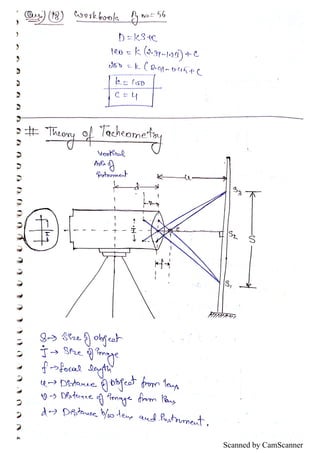 Que) (18) Workbook Pg no = 56
D = KS + C
100 = K ( ) + C
200 = K ( ) + C
K = 100
C = 4
# Theory of Tacheometry
Vertical
Axis of
Instrument
u
d
v
S3
i
S2
S
f
S1
S → Size of object
I → Size of image
f → focal length
u → Distance of object from lens
v → Distance of image from lens
d → Distance b/w lens and Instrument.
Scanned by CamScanner